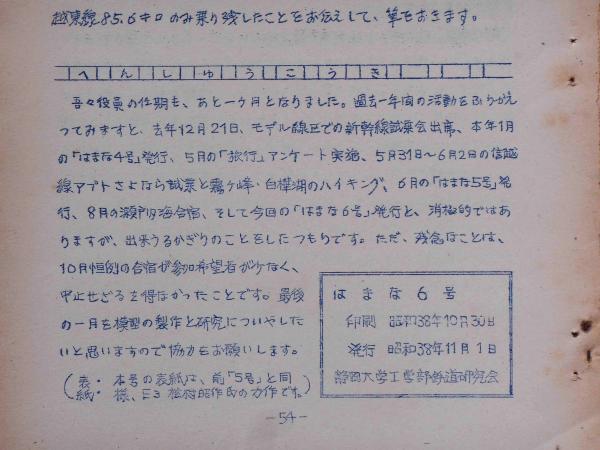 越東線85.6キロのみ乗り残したことをお伝えして、筆をおきます。
へんしゅうこうき
吾々役員の任期も、あと一ヶ月となりました。過去一年間の活動をふりかえ
ってみますと、去年12月21日、モデル線区での新幹線試乗会出席、本年1月
の「はまな4号」発行、5月の「旅行」アンケート実施、5月31日〜6月2日の信越
線アプトさよなら試乗と霧ヶ峰・白樺湖のハイキング、6月の「はまな5号」発
行、8月の瀬戸内海合宿、そして今回の「はまな6号」発行と、消極的ではあ
りますが、出来うるかぎりのことをしたつもりです。ただ、残念なことは、
10月恒例の合宿が参加希望者が少なく、
中止せざるを得なかったことです。最後
の一月を模型の製作と研究についやした
いと思いますので協力をお願いします。
(表紙・本号の表紙は、前「5号」と同
様、E3 松村昭作氏の力作です。)
はまな6号
印刷 昭和38年10月30日
発行 昭和38年11月1日
静岡大学工学部鉄道研究会
-54-